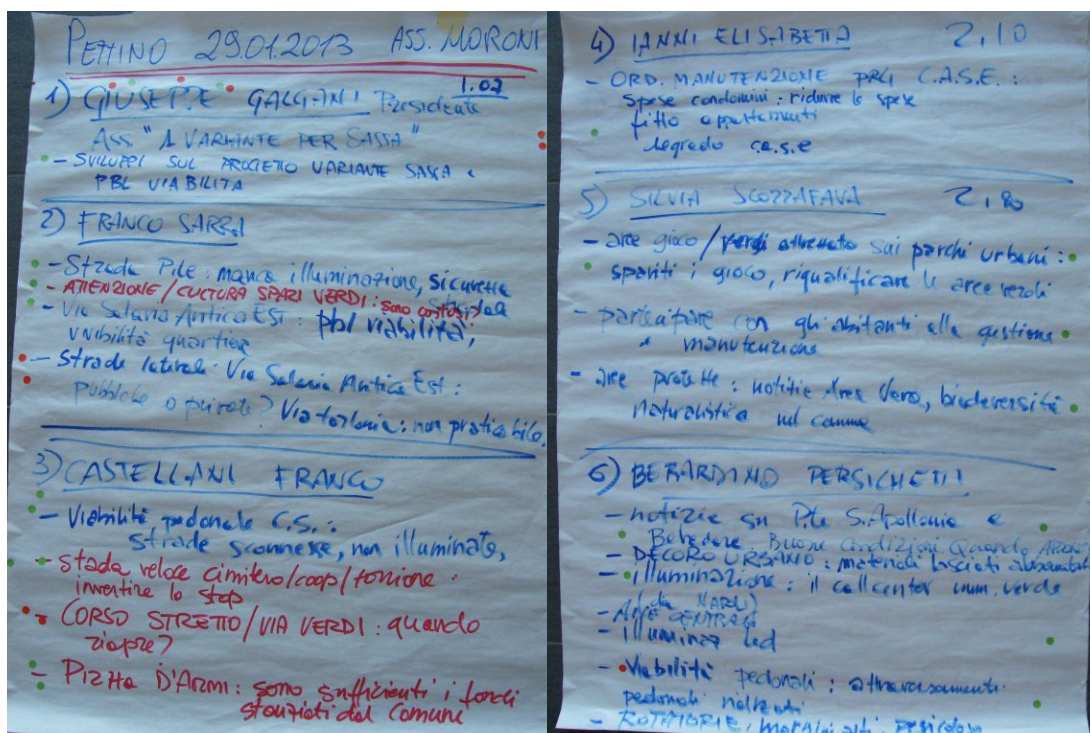 PETTINO 29.01.2013 ASS. MORONI
1.02
1) GIUSEPPE GALGANI Presidente
ASS "1 VARIANTE PER SASSA"
- SVILUPPI SUL PROGETTO VARIANTE SASSA e
PBL VIABILITA
2) FRANCO SARRA
- Strada Pile: manca illuminazione, sicurezza
- ATTENZIONE/CULTURA SPAZI VERDI: sono costosi
- Via Salaria Antica EST: pbl viabilità,
vivibilità quartiere
- Strade laterali Via Salaria Antica Est:
pubbliche o private? Via : non praticabile.
3) CASTELLANI FRANCO
- Viabilità pedonale C.S.:
strade sconnesse, non illuminate,
- stada veloce cimitero/coop/torrione:
invertire lo stop
- CORSO STRETTO/VIA VERDI: quando
riapre?
- PIZZA D'ARMI: sono sufficienti i fondi
stanziati dal Comune
4) IANNI ELISABETTA 2,10
- ORD. MANUTENZIONE PRG C.A.S.E.:
spese condomini: ridurre le spese
fitto appartamenti
degrado c.a.s.e
5) SILVIA SCOZZAFAVA 2,80
- aree gioco/verdi attrezzato sui parchi urbani:
spariti i gioco, riqualificare le aree verdi
- partecipare con gli abitanti alla gestione
e manutenzione
- aree protette: notizie Area Vera, biodiversità
naturalistica nel comune
6) BERARDINO PERSICHETTI
- notizie su P.le S. Apollonia e
Belvedere. Buone condizioni Quando
- DECORO URBANO: materiali lasciati abbandonati
- illuminazione: il callcenter num. verde
(da NARDI)
- CENTRALI
- illuminaz led
- Viabilità pedonali: attraversamenti
pedonali rialzati
- ROTATORIE: margini alti, pericoloso